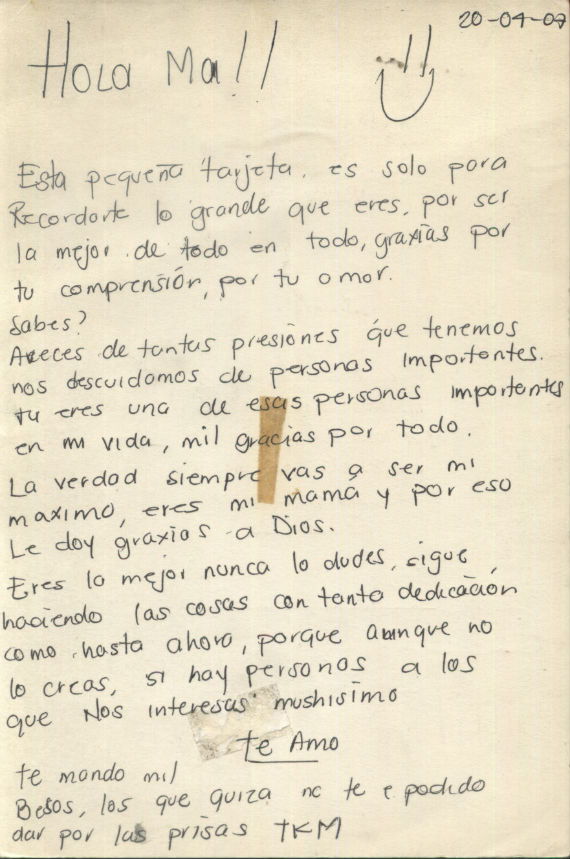 20-04-09
Hola Ma!!
Esta pequeña tarjeta. es solo para
Recordarte lo grande que eres, por ser
la mejor de todo en todo, graxias por
tu comprensión, por tu amor.
Sabes?
Aveces de tantas presiones que tenemos
nos descuidamos de personas importantes.
tu eres una de esas personas importantes
en mi vida, mil gracias por todo.
La verdad siempre vas a ser mi
maximo, eres mi mamá y por eso
Le doy graxias a Dios.
Eres la mejor nunca lo dudes, sigue
haciendo las cosas con tanta dedicación
como hasta ahora, porque aunque no
lo creas, si hay personas a los
que Nos interesas mushisimo
te Amo
te mando mil
Besos, los que quiza no te e podido
dar por las prisas TKM